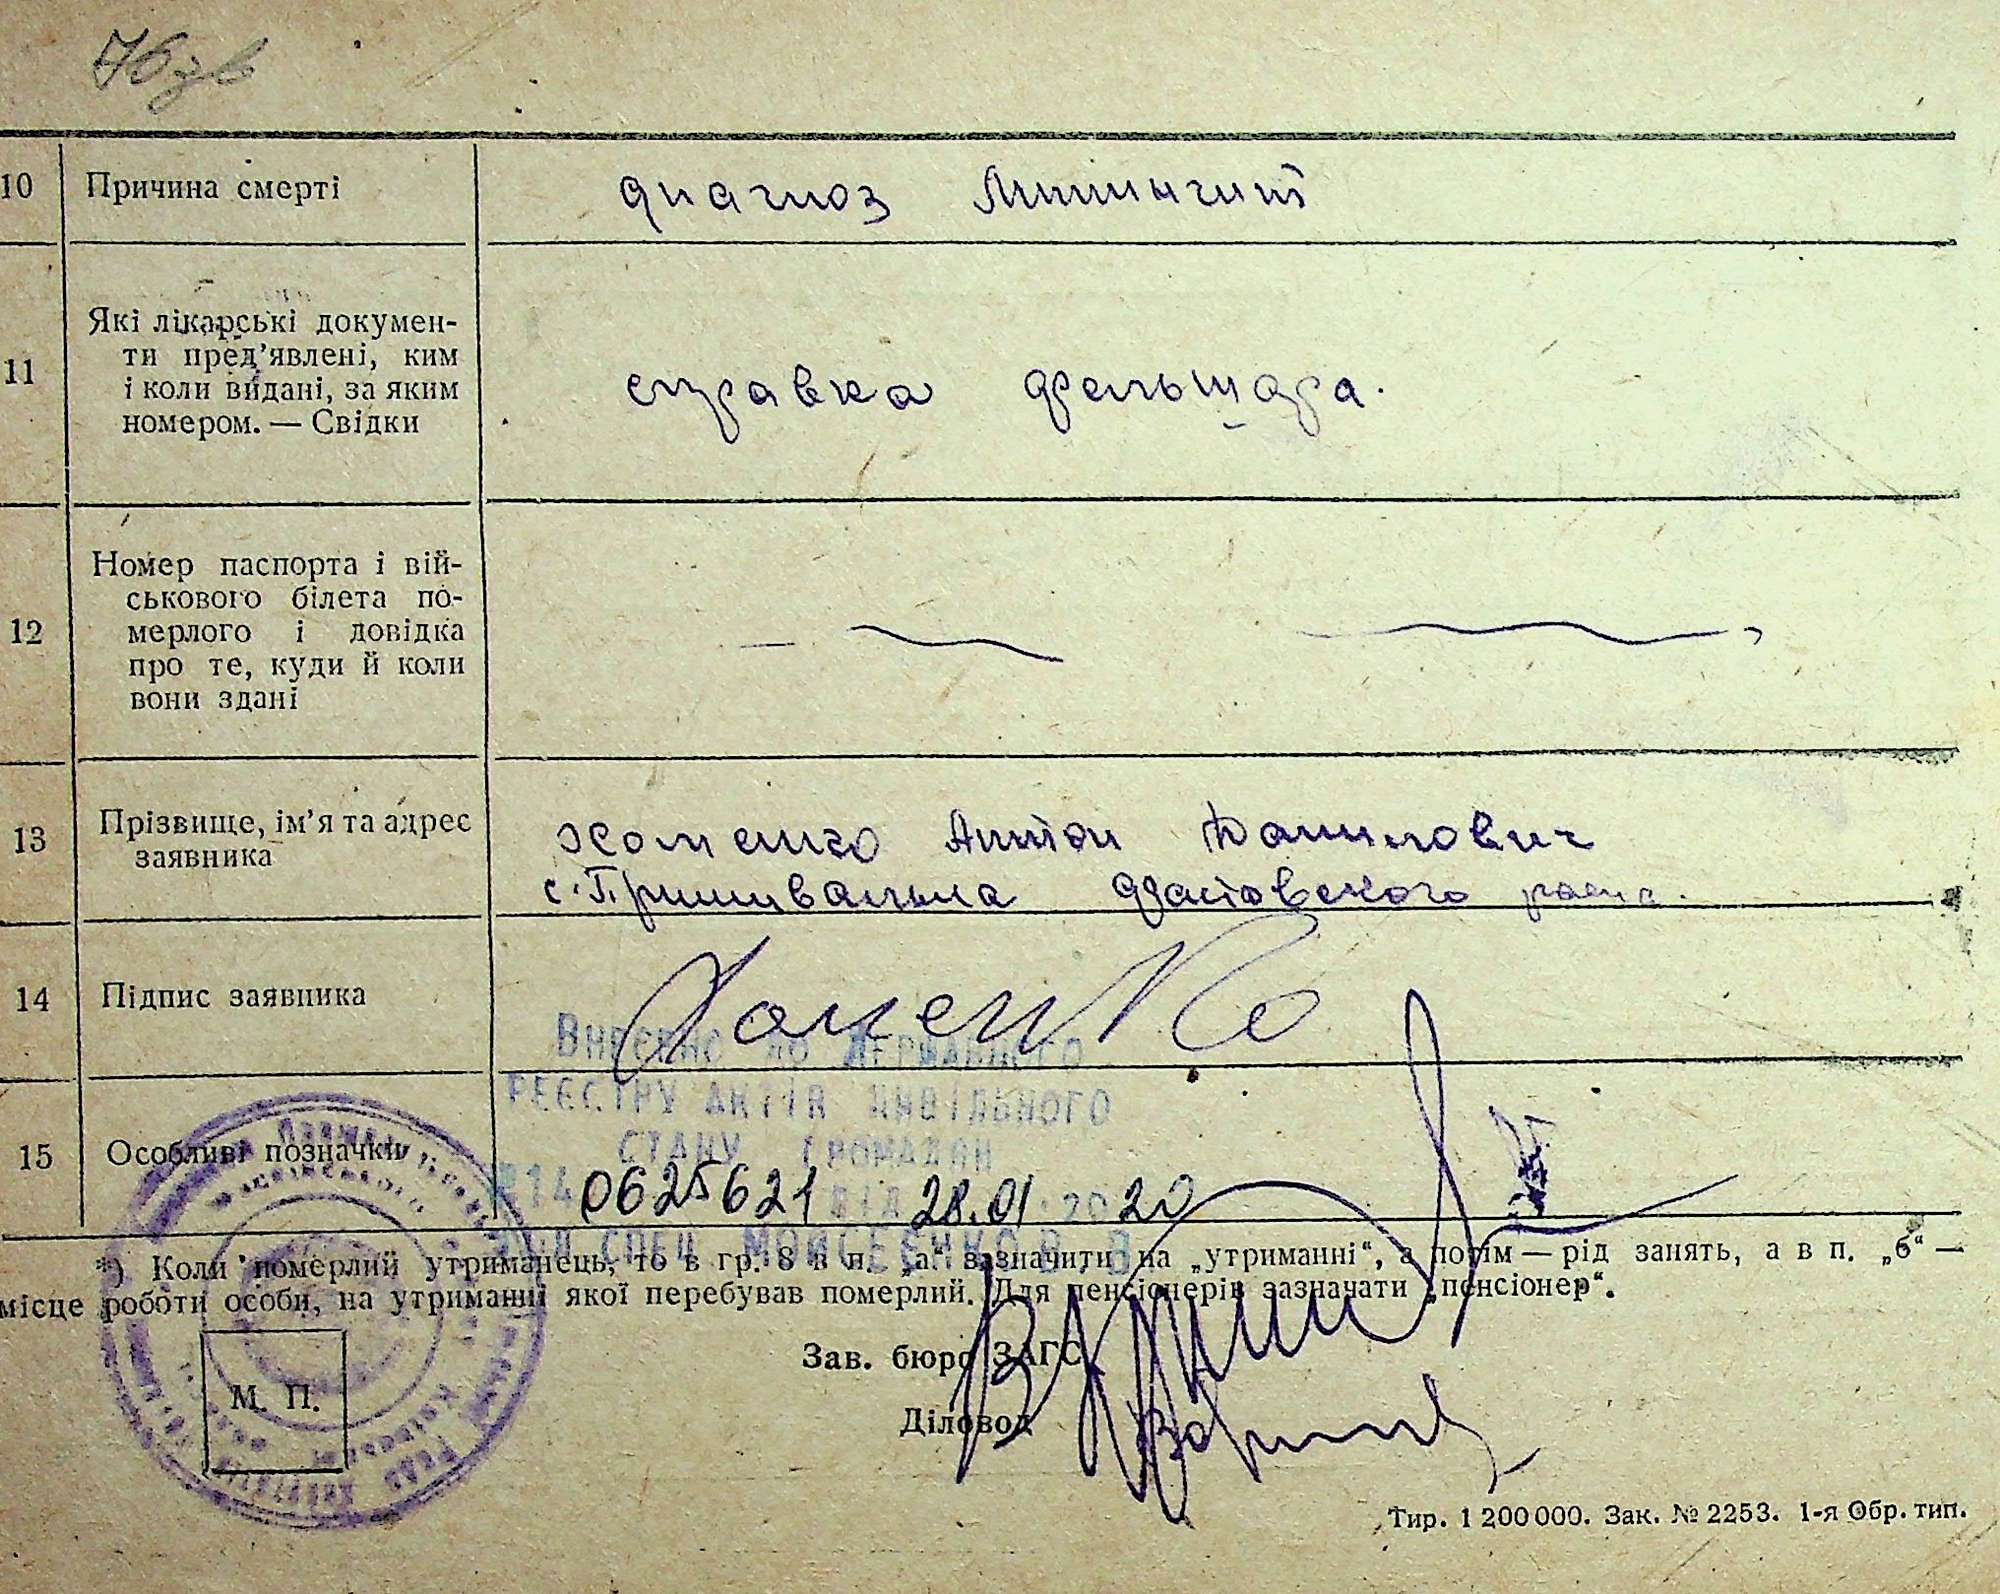 76 зв
10 Причина смерті диагноз Минингит
11 Які лікарські докумен-
ти пред’явлені, ким
і коли видані, за яким
номером. — Свідки
справка фельшара.
12 Номер паспорта і вій-
ськового білета по-
мерлого і довідка
про те, куди й коли
вони здані
13 Прізвище, ім’я та адрес
заявника
Хоменко Антон Данилович
с. Пришивальна Фастовского
14 Підпис заявника Хоменко
Внесено до Державного
реєстру актів цивільного
стану громадян
15 Особливі позначки
0625621 від 28.01.2020
спец. Мойсеєнко
*) Коли померлий утриманець, то в гр. 8 в п. „а“ зазначити на „утриманні“, а потім — рід занять, а в п. „б“ —
місце роботи особи, на утриманні якої перебував померлий. Для пенсіонерів зазначати „пенсіонер“.
Зав. бюро ЗАГС
М. П.
Діловод
Тир. 1 200 000. Зак. № 2253. 1-я Обр. тип.